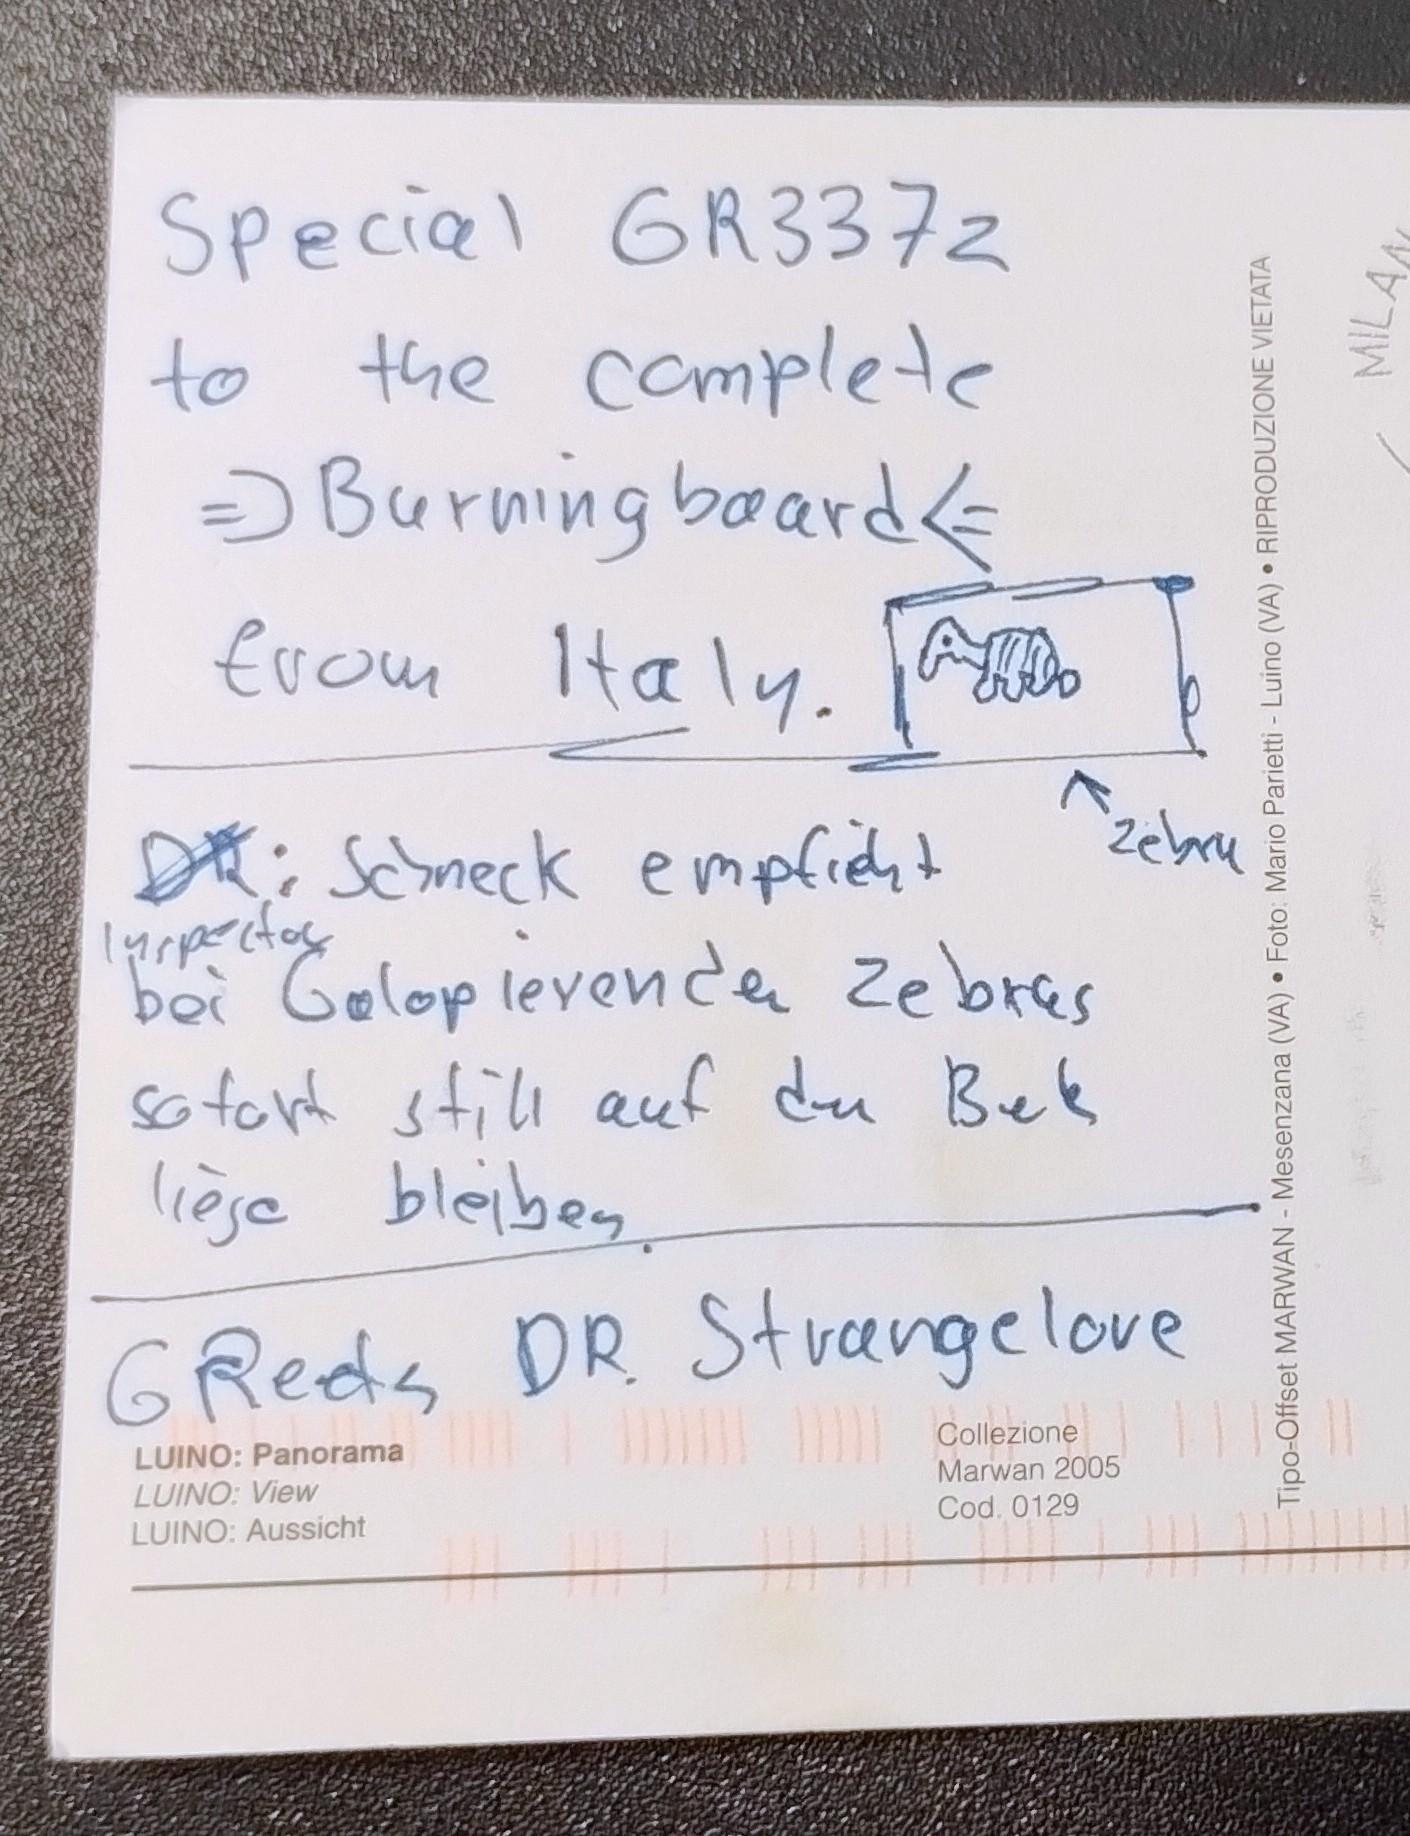 Special GR337z
to the complete
=> Burningboard <=
from Italy.
zebra
DR: Schneck empfieht
Inspector
bei Galopierenden Zebras
sofort still auf den
liege bleiben.
GReets DR. Strangelove
LUINO: Panorama
LUINO: View
LUINO: Aussicht
Collezione
Marwan 2005
Cod. 0129
Tipo-Offset MARWAN - Mesenzana (VA) • Foto: Mario Parietti - Luino (VA) • RIPRODUZIONE VIETATA
MILAN